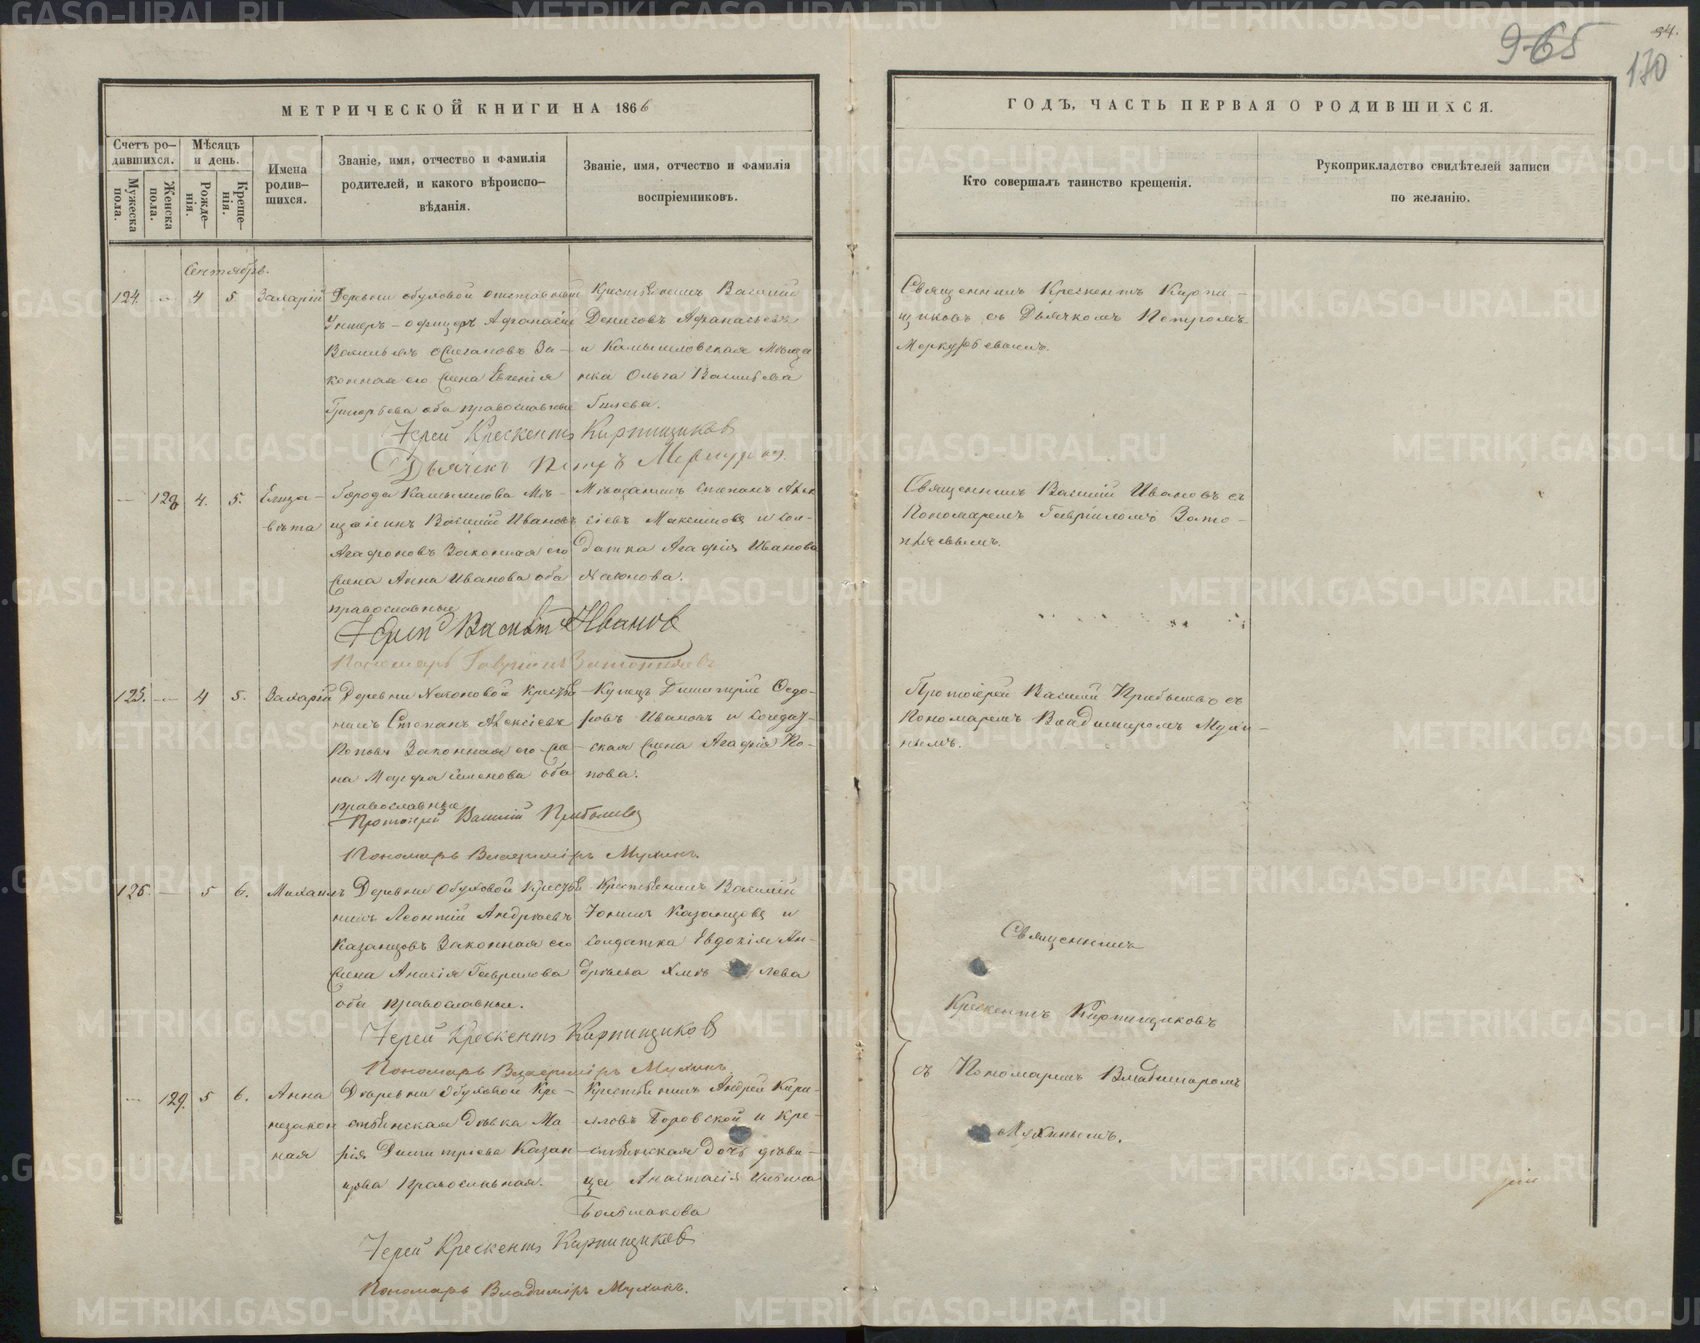 965
94.
170
МЕТРИЧЕСКОЙ КНИГИ НА 1866
ГОДЪ, ЧАСТЬ ПЕРВАЯ О РОДИВШИХСЯ.
Счетъ ро-
дившихся.
Мужеска
пола.
Женска
пола.
Мѣсяцъ
и день.
Рожде-
нія.
Креще-
нія.
Имена
родив-
шихся.
Званіе, имя, отчество и фамилія
родителей, и какого вѣроиспо-
вѣданія.
Званіе, имя, отчество и фамилія
воспріемниковъ.
Кто совершалъ таинство крещенія.
Рукоприкладство свидѣтелей записи
по желанію.
Сентябрь.
124. — 4 5 Захарій
Деревни Обуховой отставный
Унтеръ-офицеръ Афанасій
Васильевъ Законная его жена Евгенія
Григорьева оба православные
Крестьянинъ Василій
Денисовъ Афанасьевъ
и Камышловская Мѣщанка Ольга Васильева
Священникъ Крескентъ Кирпи-
щиковъ съ Дьячкомъ Петромъ
Меркурьевымъ.
Іерей Крескентъ Кирпищиковъ
Дьячекъ Петръ Меркурьевъ
— 128 4. 5. Елиза-
вета
Города Камышлова Мѣ-
щанинъ Василій Ивановъ
Агафоновъ Законная его
жена Анна Иванова оба
православные
Мѣщанинъ Степанъ Алек
сіевъ Максимовъ и сол-
датка Агафія Иванова
Священникъ Василій Ивановъ съ
Пономаремъ Гавріиломъ
Іерей Василій Ивановъ
Пономарь Гавріилъ
125. — 4 5. Захарій
Деревни крестья
нинъ Степанъ Алексіевъ
Поповъ Законная его же-
на Марфа Семенова оба
православные
Купецъ Димитрій Ѳедо-
ровъ Ивановъ и солдат-
ская жена Агафія По-
пова.
Протоіерей Василій съ
Пономаремъ Владиміромъ Мухи-
нымъ.
Протоіерей Василій
Пономарь Владиміръ Мухинъ.
126. — 5 6. Михаилъ
Деревни Обуховой Крестья
нинъ Леонтій Андреевъ
Казанцовъ Законная его
жена Анисія Гаврилова
оба православные.
Крестьянинъ Василій
Іонинъ Казанцовъ и
солдатка Евдокія Ан-
дреева Хмѣлева
Священникъ
Крескентъ Кирпищиковъ
съ Пономаремъ Владиміромъ
Мухинымъ.
Іерей Крескентъ Кирпищиковъ
Пономарь Владиміръ Мухинъ.
— 129. 5 6. Анна
незакон
ная
Деревни Обуховой Кре-
стьянская дѣвка Ма-
рія Димитріева Казан
цова Православная.
Крестьянинъ Андрей Кири-
ловъ Боровской и Кре-
стьянская дочь дѣви-
ца Анастасія
Большакова
Іерей Крескентъ Кирпищиковъ
Пономарь Владиміръ Мухинъ.
METRIKI.GASO-URAL.RU